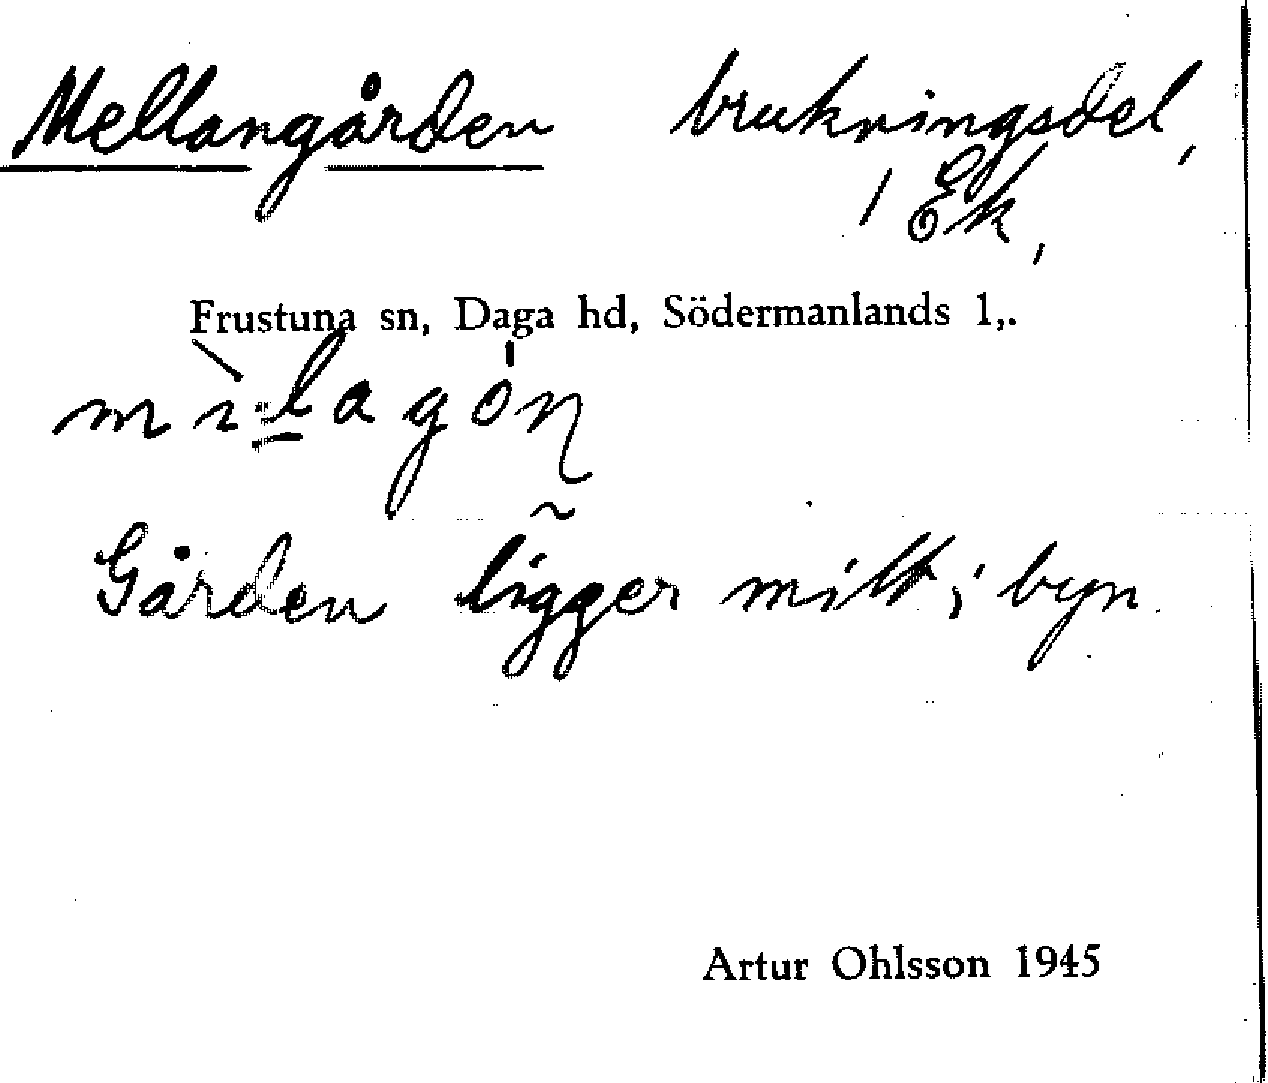 Mellangården brukningsdel,
1 Ek,
Frustuna sn, Daga hd, Södermanlands l,.
Gården ligger mitt i byn
Artur Ohlsson 1945